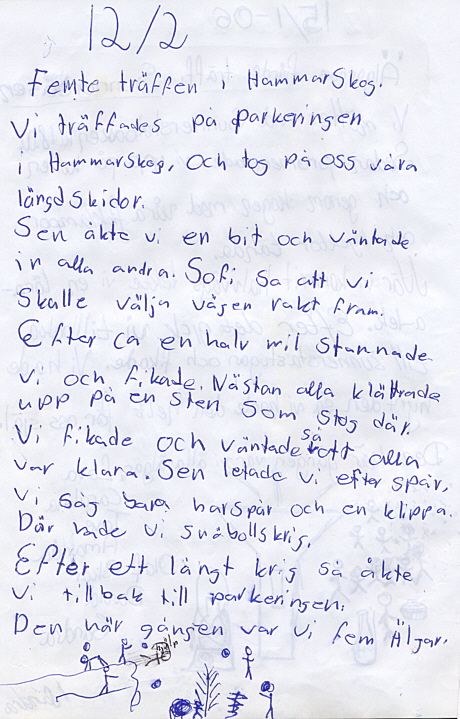 12/2
Femte träffen i Hammarskog.
Vi träffades på parkeringen
i Hammarskog, och tog på oss våra
längdskidor.
Sen åkte vi en bit och väntade
in alla andra. Sofi sa att vi
skalle välja vägen rakt fram.
Efter ca en halv mil stannade
vi och fikade. Nästan alla klättrade
upp på en sten som stog där.
Vi fikade och väntade så att alla
var klara. Sen letade vi efter spår,
vi såg bara harspår och en klippa.
Där hade vi snöbollskrig.
Efter ett långt krig så åkte
vi tillbak till parkeringen.
Den här gången var vi fem Älgar.
hjälp